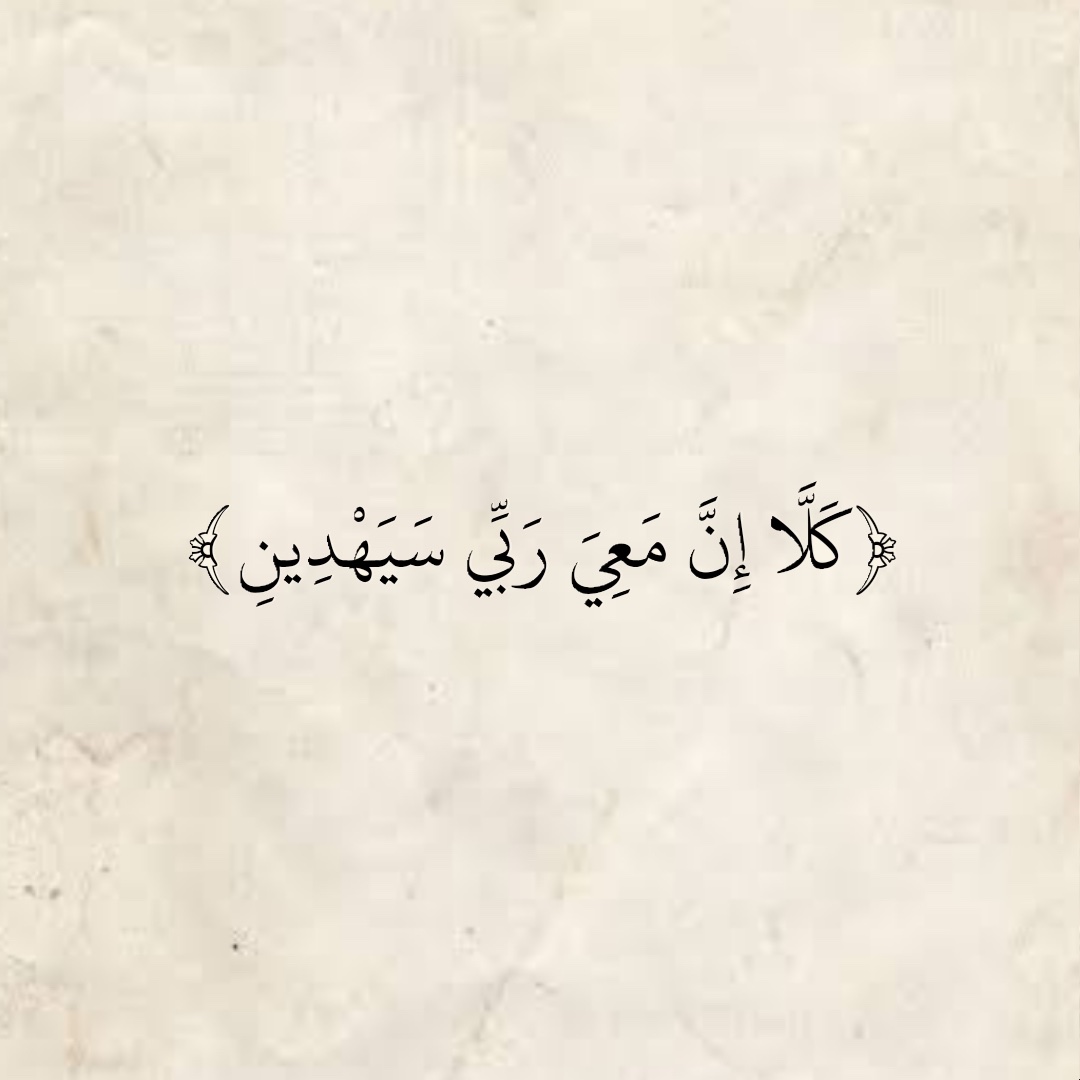 ﴿كَلَّا إِنَّ مَعِيَ رَبِّي سَيَهْدِينِ﴾